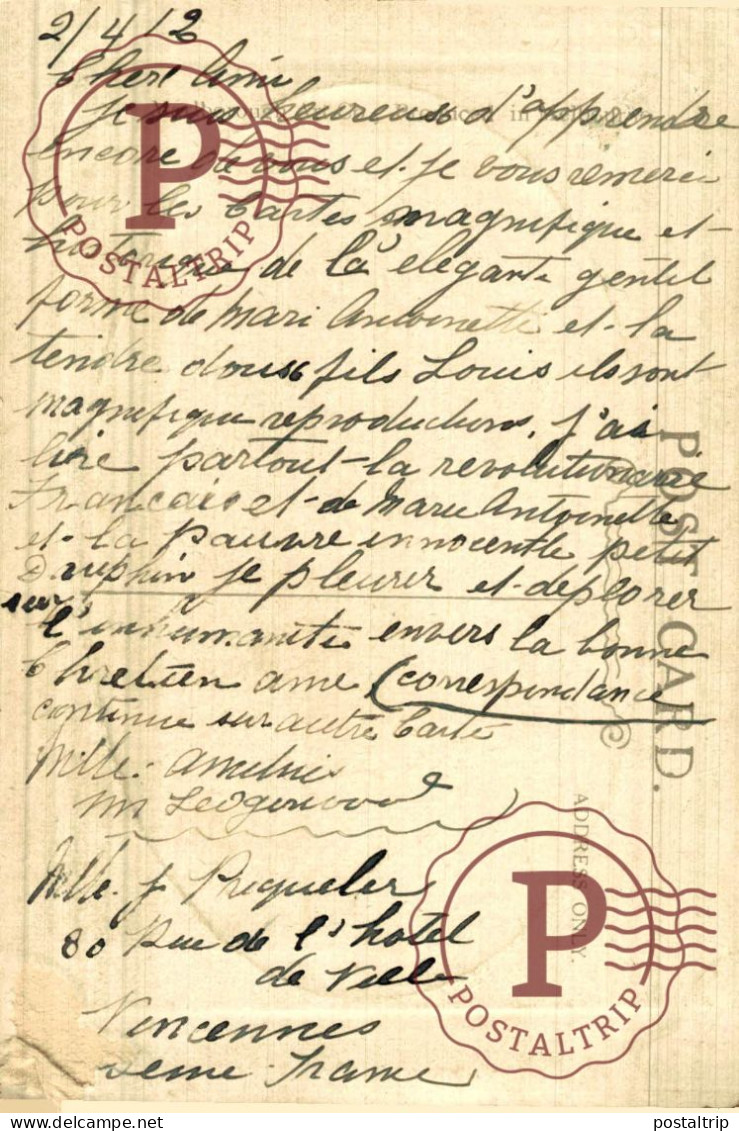 2/4/2
Chere Amie
Je suis heureuse d'apprendre
encore de vous et je vous remerci
pour les Cartes magnifique et
historique de la elegante gentil
forme de Mari Antoinette et la
tendre douse fils Louis ils sont
magnifique reproductions, j'ai
lire partout la revolutionarie
Francaise et de Marie Antoinette
et la pauvre innocentle petit
Dauphin je pleurer et deplorer
sur l'inhumanité envers la bonne
Chretien ame (correspondance
continue sur autre Carte
Mlle.
M Ledgerwood
Mlle. J
80 Rue de l'hotel
de Ville
Vincennes
Seine France
POST CARD.
ADDRESS ONLY
P
POSTALTRIP
P
POSTALTRIP
delcampe.net
postaltrip